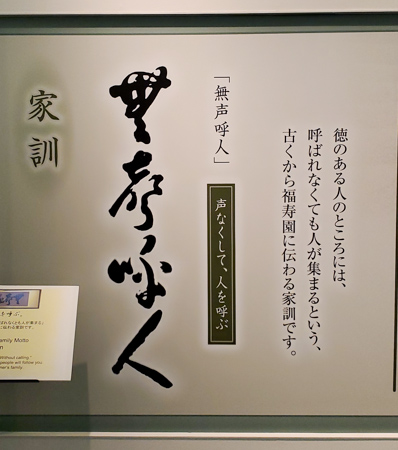 徳のある人のところには、
呼ばれなくても人が集まるという、
古くから福寿園に伝わる家訓です。
「無声呼人」
声なくして、人を呼ぶ
無声呼人
家訓
amily Motto
Without calling."
people will follow you.
mer's family.